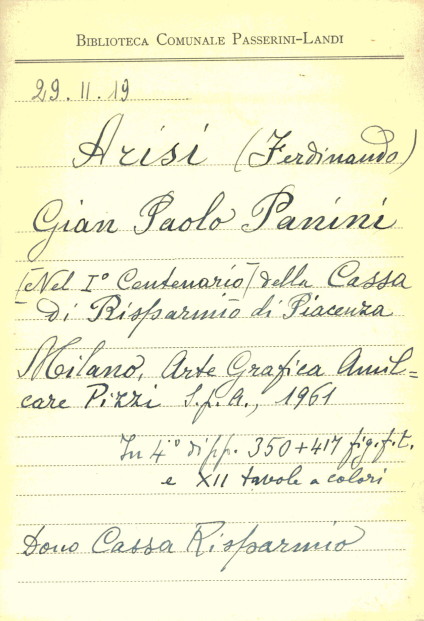 BIBLIOTECA COMUNALE PASSERINI-LANDI
29.II.19
Arisi (Ferdinando)
Gian Paolo Panini
[Nel I° Centenario] della Cassa
di Risparmio di Piacenza
Milano, Arte Grafica Amil=
care Pizzi S.p.A., 1961
In 4° di pp. 350+417 fig.f.t.
e XII tavole a colori
Dono Cassa Risparmio